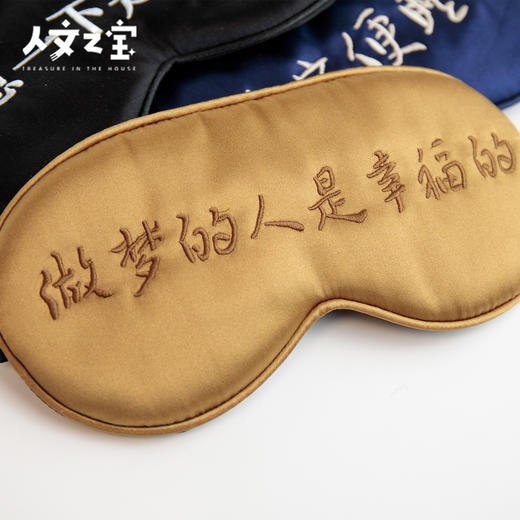 人文之宝
TREASURE IN THE HOUSE
便睡
做梦的人是幸福的